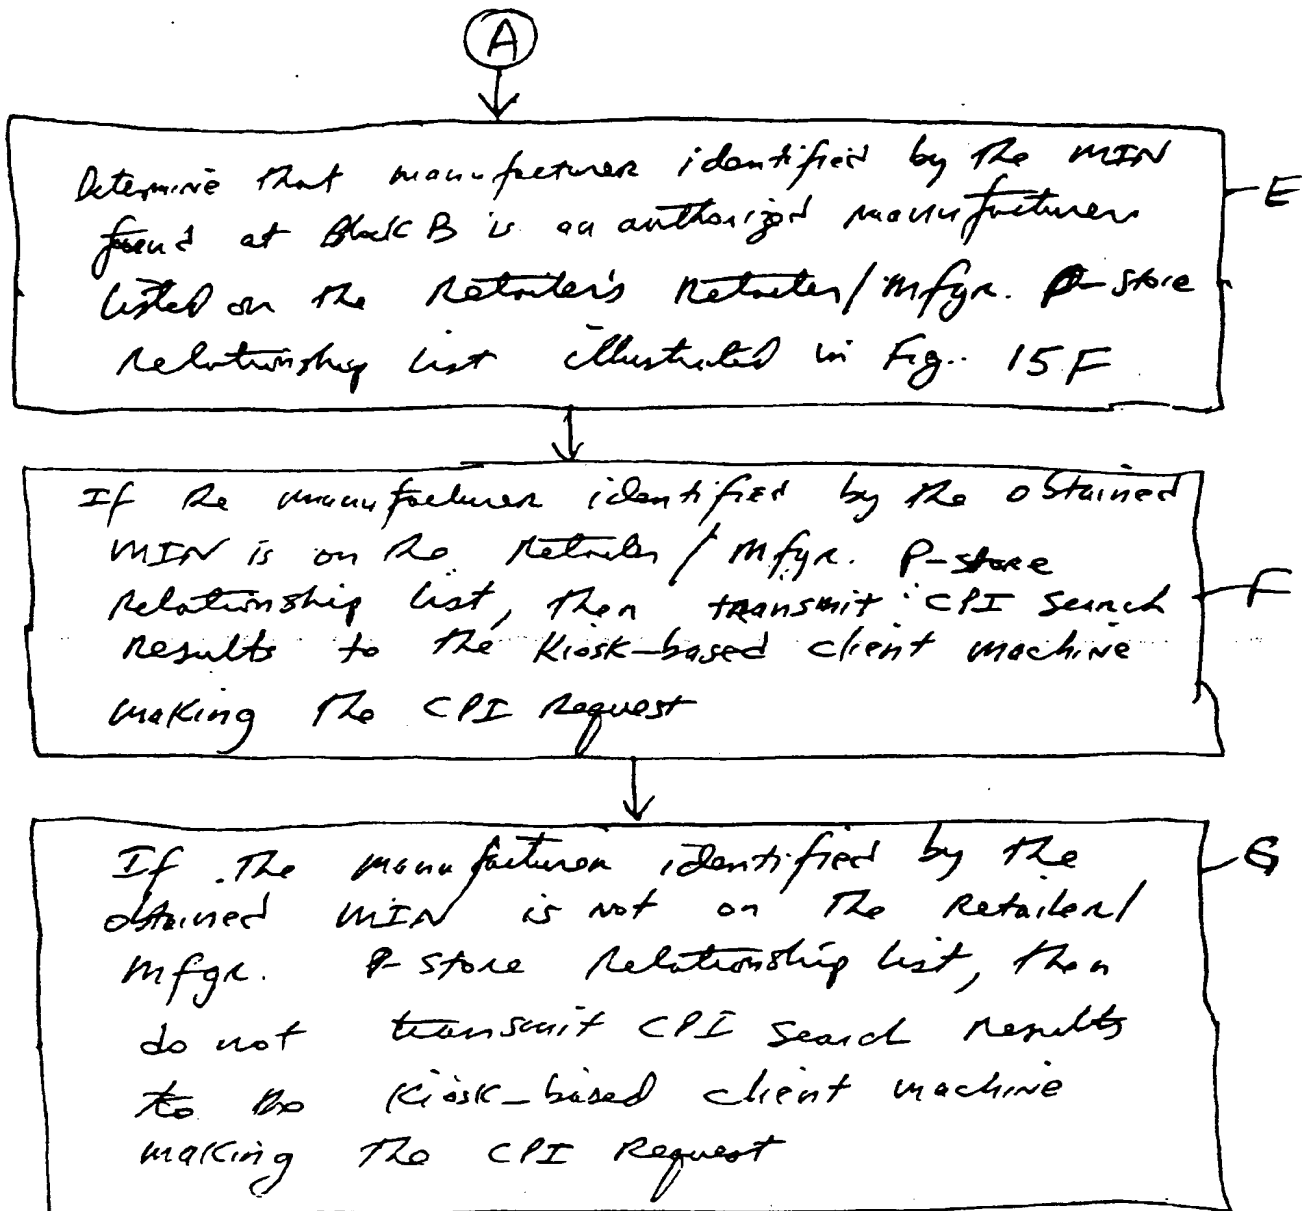 A
Determine that manufacturer identified by the MIN
found at Block B is an authorized manufacturer
listed on the Retailer's Retailer/Mfgr. P-Store
Relationship List illustrated in Fig. 15F
E
If the manufacturer identified by the obtained
MIN is on the Retailer/Mfgr. P-store
Relationship List, then transmit CPI Search
Results to the Kiosk-based client machine
making the CPI Request
F
If the manufacturer identified by the
obtained MIN is not on the Retailer/
Mfgr. P-Store Relationship List, then
do not transmit CPI Search Results
to the Kiosk-based client machine
making the CPI Request
G